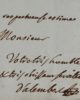 respectueuse estime
Monsieur
Votre très humble
et très obéissant
Dalembert